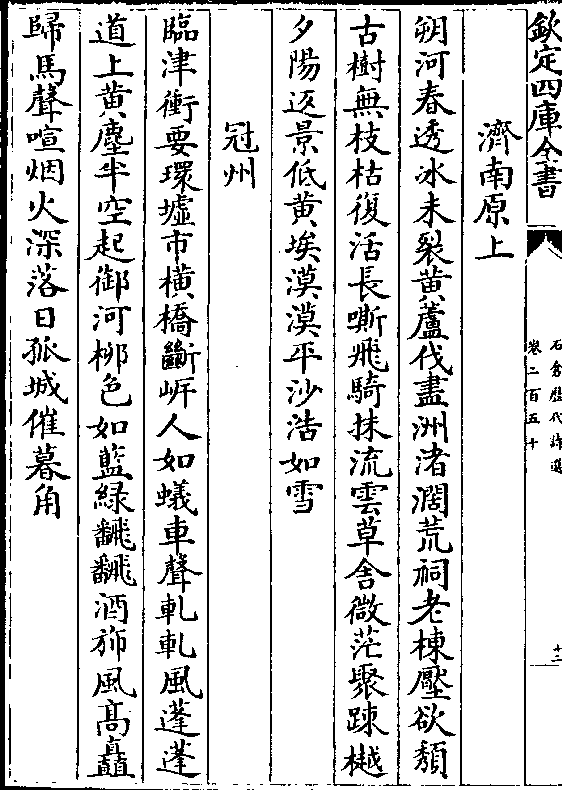 欽定四庫全書
石倉歷代詩選
卷二百五十
十二
濟南原上
朔河春透冰未裂黄蘆伐盡洲渚濶荒祠老棟壓欲頹
古樹無枝枯復活長嘶飛騎抹流雲草舍微茫聚踈樾
夕陽返景低黄埃漠漠平沙浩如雪
冠州
臨津衝要環墟市横橋斷岍人如蟻車聲軋軋風蓬蓬
道上黄塵半空起御河栁色如藍緑飜飜酒斾風髙矗
歸馬聲喧烟火深落日孤城催暮角